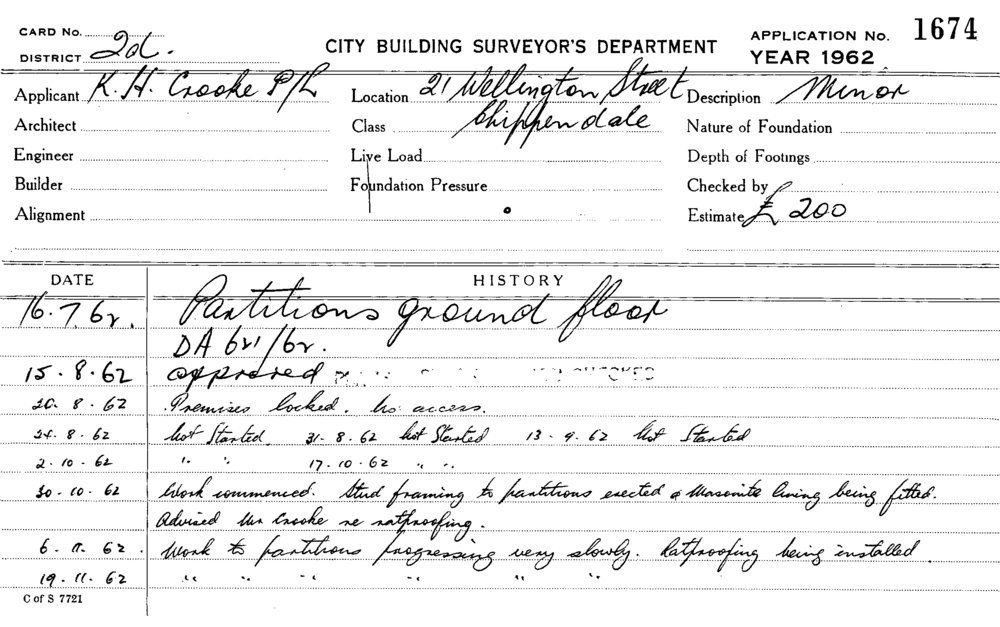 CARD No.
DISTRICT 2d.
CITY BUILDING SURVEYOR'S DEPARTMENT
APPLICATION No. 1674
YEAR 1962
Applicant K. H. Crooke P/L
Location 21 Wellington Street
Description Minor
Architect
Class Chippendale
Nature of Foundation
Engineer
Live Load
Depth of Footings
Builder
Foundation Pressure
Checked by
Alignment
Estimate £ 200
DATE HISTORY
16.7.62. Partitions ground floor
DA 621/62.
15.8.62 approved
20.8.62 Premises locked. No access.
24.8.62 Not Started. 31-8.62 Not Started 13.9.62 Not Started
2.10.62 " " 17.10.62 " "
30.10.62 Work commenced. Stud framing to partitions erected & Masonite lining being fitted.
Advised Mr Crooke re ratproofing.
6.11.62. Work to partitions progressing very slowly. Ratproofing being installed
19.11.62 " " " " " "
C of S 7721